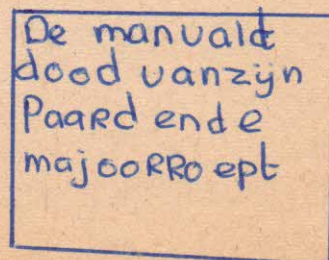 De manvalt
dood vanzijn
PaaRd en de
majooRRoept